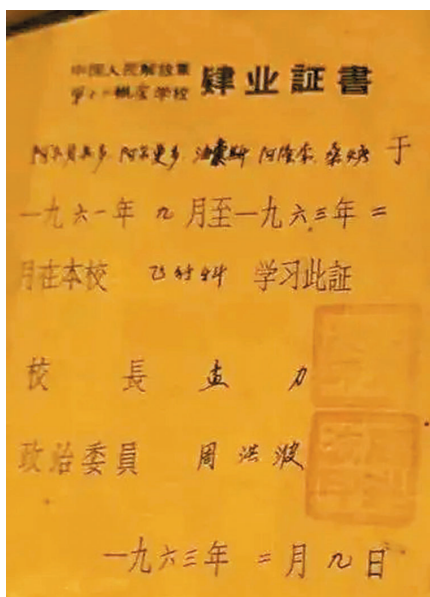 中国人民解放軍
第十二航空学校 肄业証書
阿尔贝託多 阿尔曼多 阿隆索 桑切 于
一九六一年 九月至一九六三年 二
月在本校 飞行科 学习此証
校 長 孟 力
政治委員 周洪波
一九六三年 二月九日